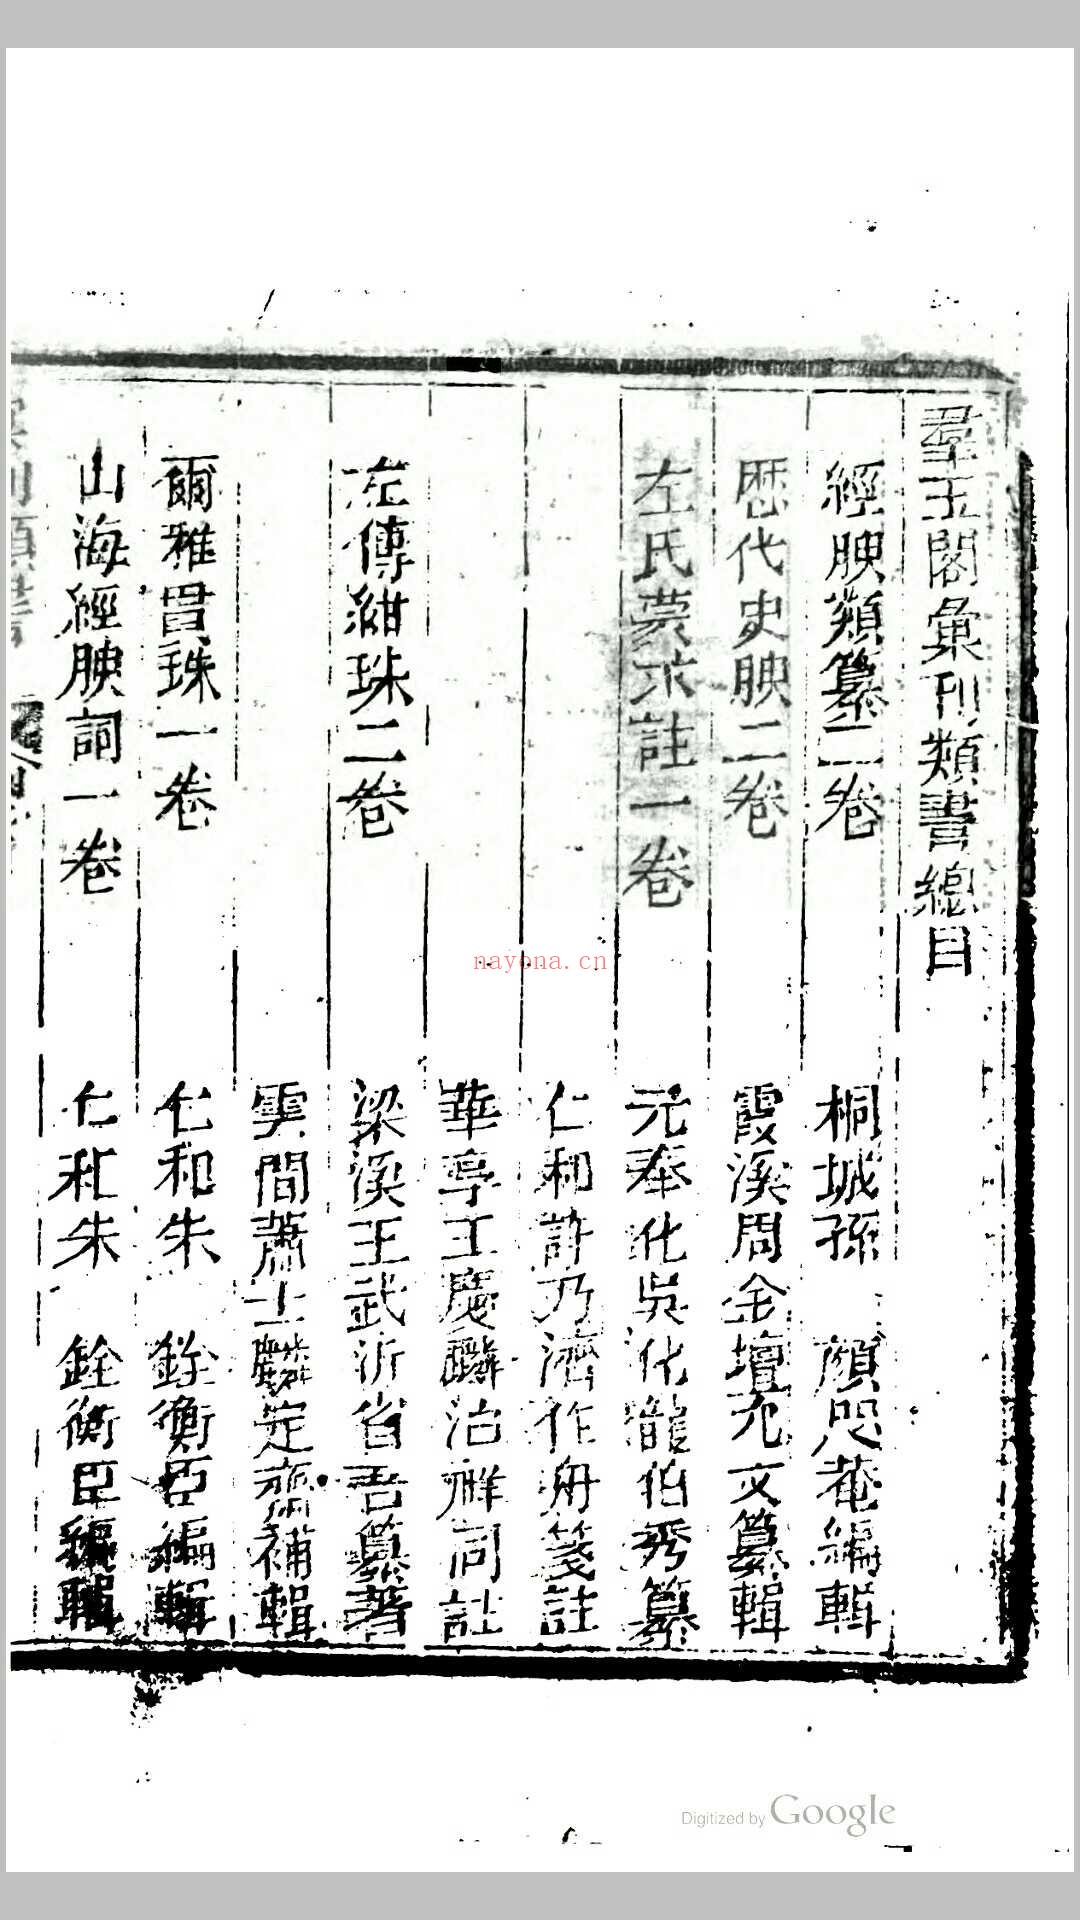 羣玉閣彙刊類書總目
經腴類纂二卷 桐城孫 顏咫菴編輯
歷代史腴二卷 霞溪周金壇允文纂輯
左氏蒙求註一卷 元奉化吳化龍伯秀纂
仁和許乃濟作舟箋註
華亭王慶麟治祥同註
左傳紺珠二卷 梁溪王武沂省吾纂著
雲間蕭士麟定齋補輯
爾雅貫珠一卷 仁和朱 銓衡臣編輯
山海經腴詞一卷 仁和朱 銓衡臣編輯
nayona.cn
Digitized by Google